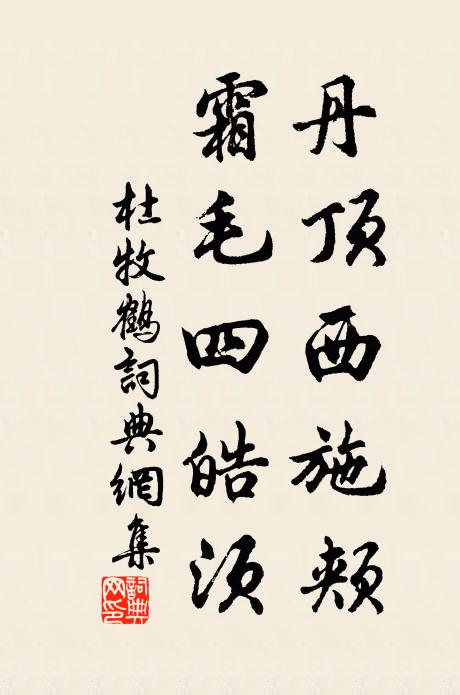 丹顶西施颊
霜毛四皓须
杜牧鹤詞典網集
詞典网印